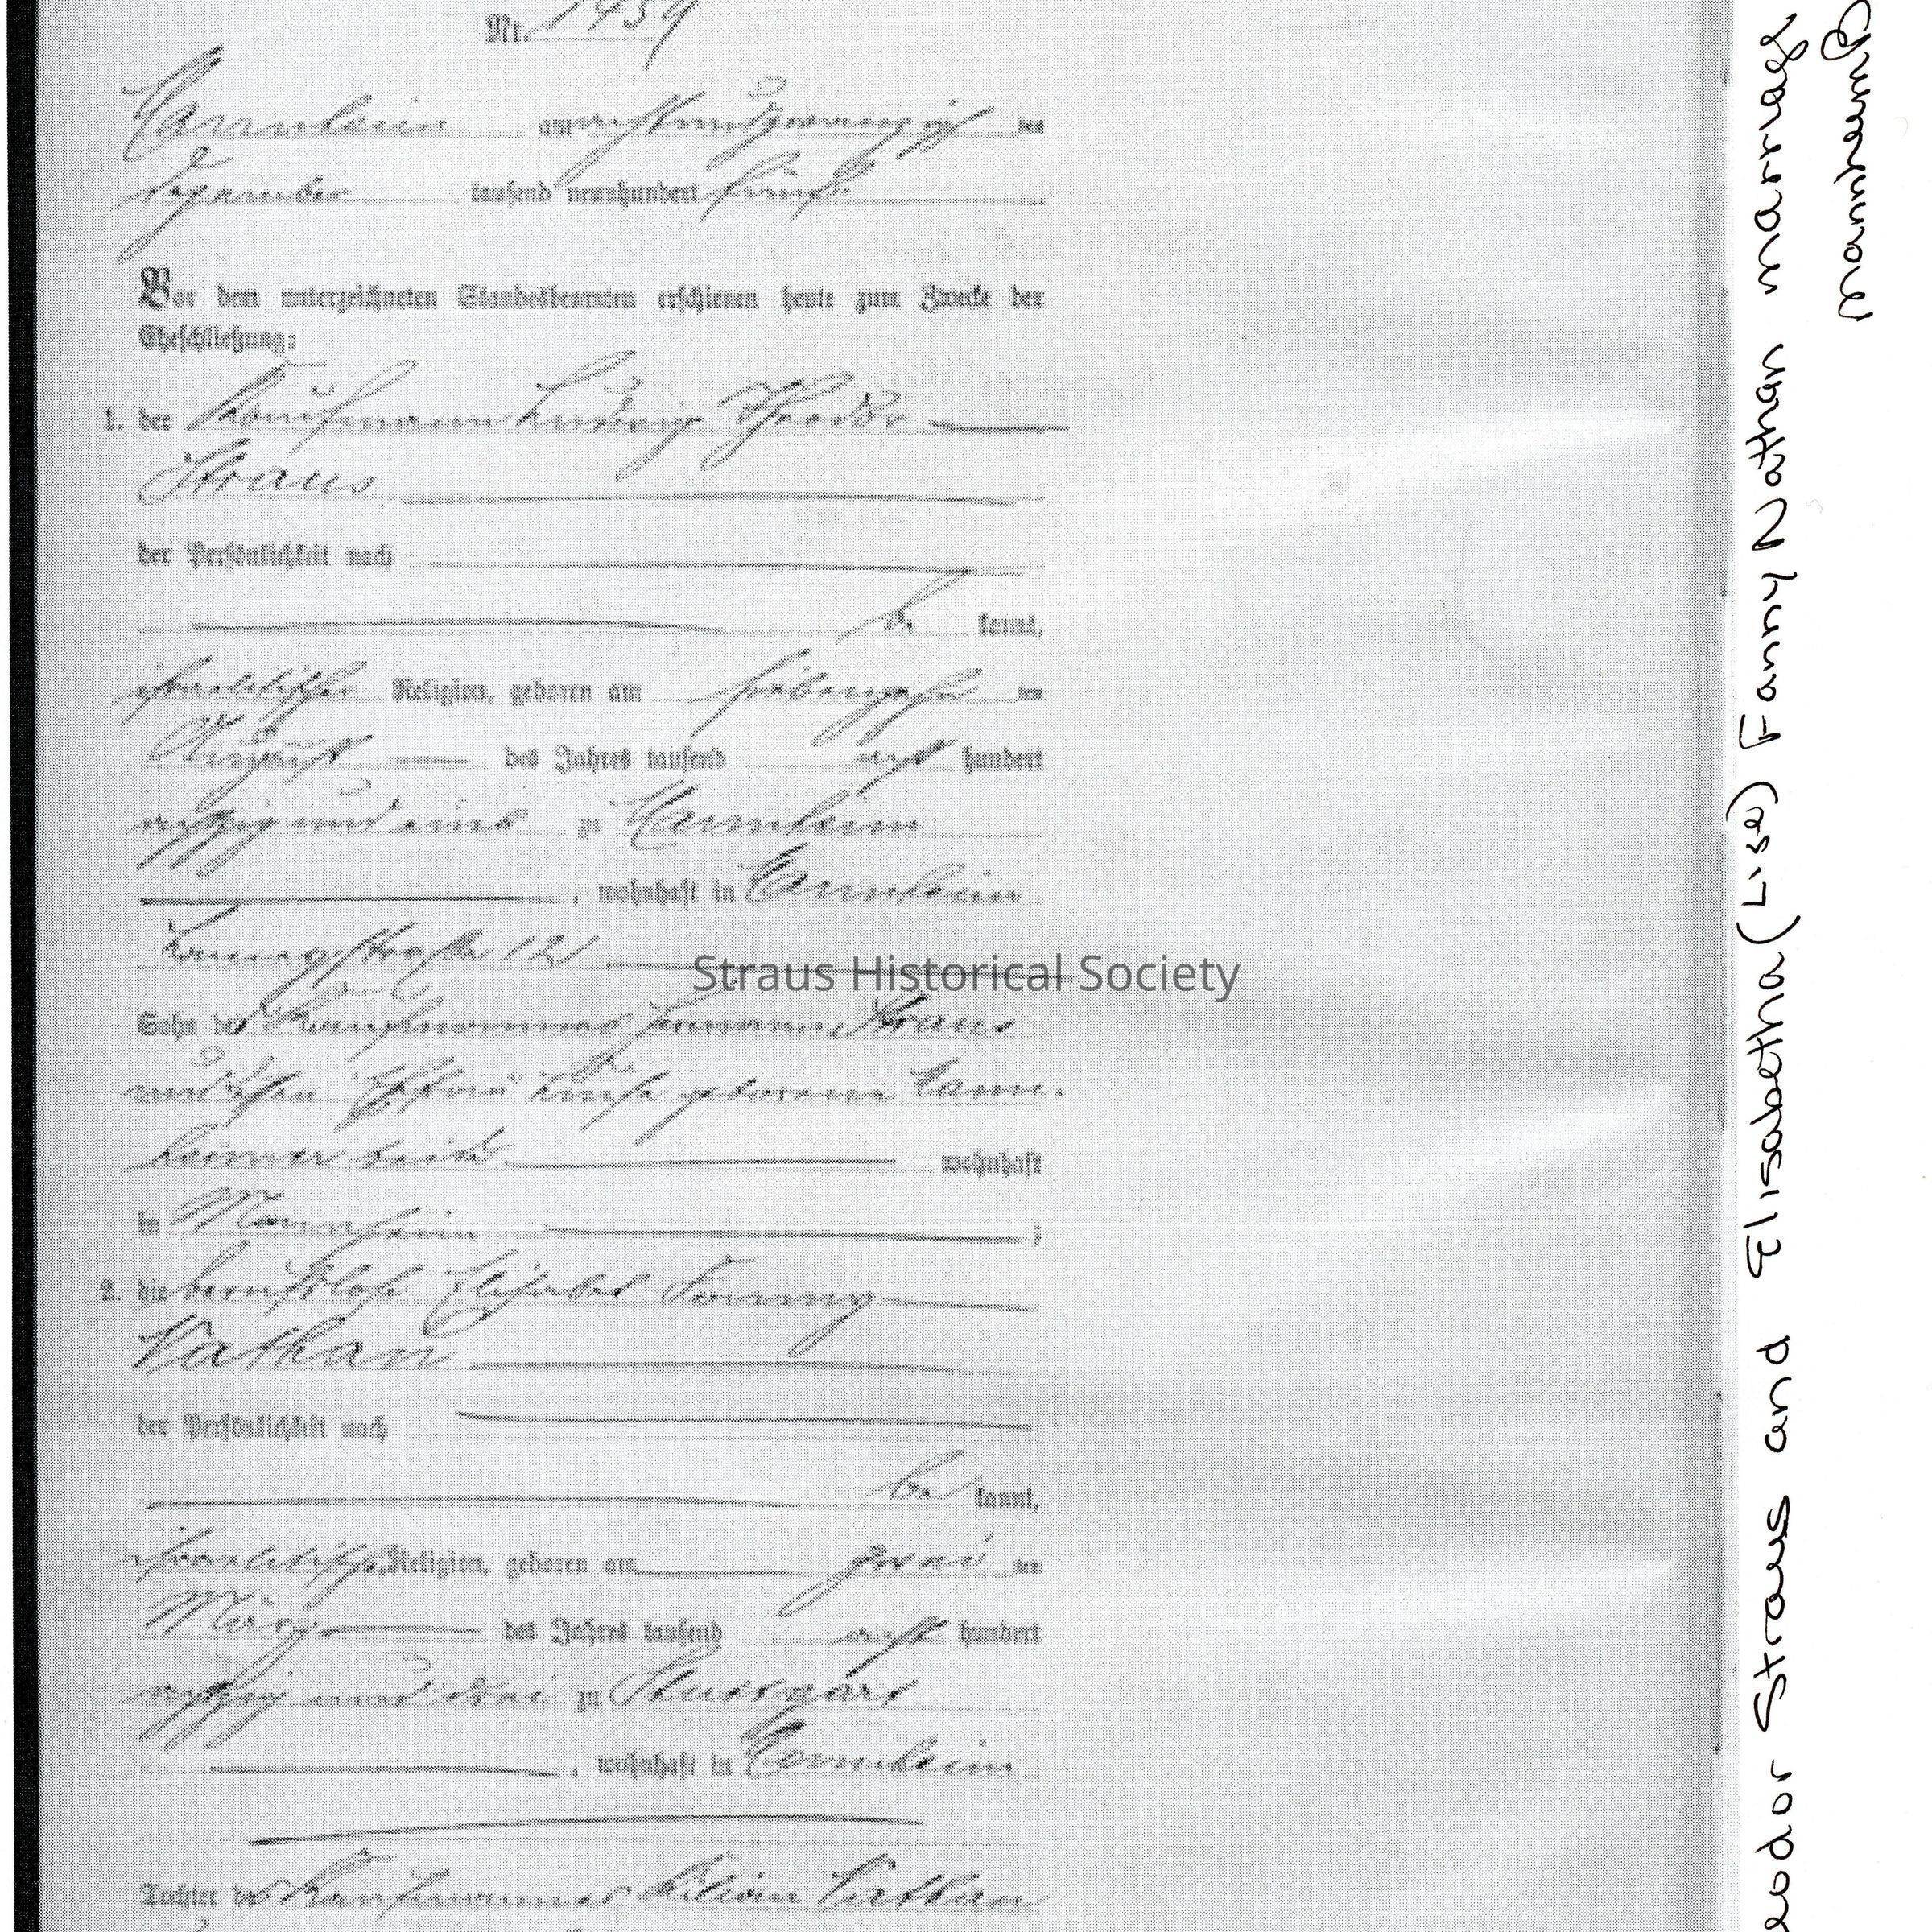 Nr. 1459
Mannheim am achtundzwanzigsten
Dezember tausend neunhundert fünf
Vor dem unterzeichneten Standesbeamten erschienen heute zum Zwecke der
Eheschließung:
1. der Kaufmann Ludwig Theodor
Straus
der Persönlichkeit nach
be kannt,
israelitischer Religion, geboren am siebenzehnten
August des Jahres tausend acht hundert
achtzig und eins zu Mannheim
, wohnhaft in Mannheim
12
Sohn des Kaufmannes Straus
und dessen Ehefrau geborene
beide wohnhaft
in Mannheim ;
2. die berufslose Elisabet Fanny
Nathan
der Persönlichkeit nach
be kannt,
israelitischer Religion, geboren am zwei ten
März des Jahres tausend acht hundert
achtzig und drei zu Stuttgart
, wohnhaft in Mannheim
Tochter des Kaufmannes Nathan
Straus Historical Society
eodor Straus and Elisabetha (Lise) Fanny Nathan marriage
Mannheim